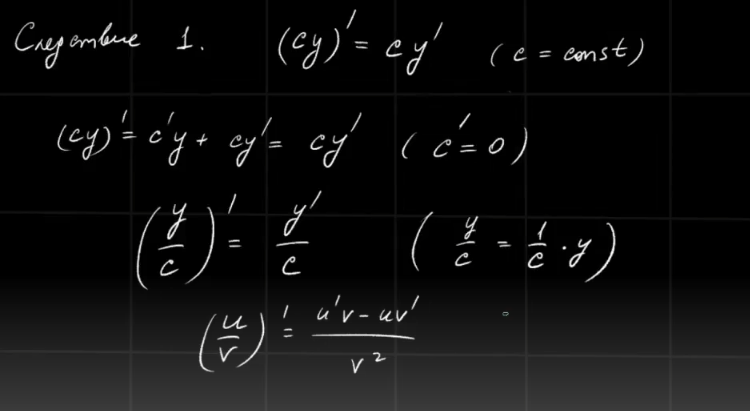 Следствие 1. (cy)' = cy' (c = const)
(cy)' = c'y + cy' = cy' (c' = 0)
(y/c)' = y'/c (y/c = 1/c · y)
(u/v)' = (u'v - uv')/v²